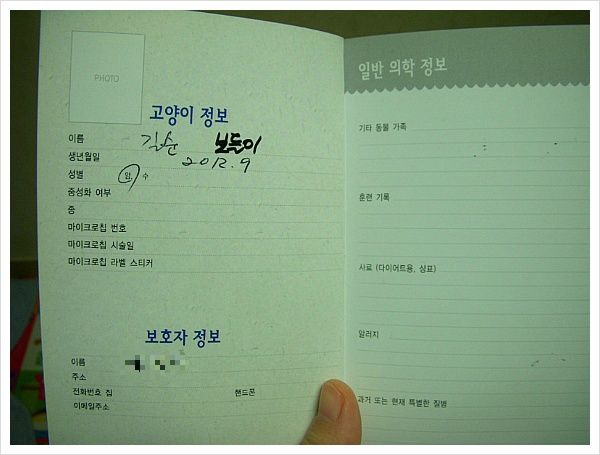 PHOTO
고양이 정보
이름 길순 보들이
생년월일 2012.9
성별 암, 수
중성화 여부
종
마이크로칩 번호
마이크로칩 시술일
마이크로칩 라벨 스티커
보호자 정보
이름
주소
전화번호 집 핸드폰
이메일주소
일반 의학 정보
기타 동물 가족
훈련 기록
사료 (다이어트용, 상표)
알러지
과거 또는 현재 특별한 질병